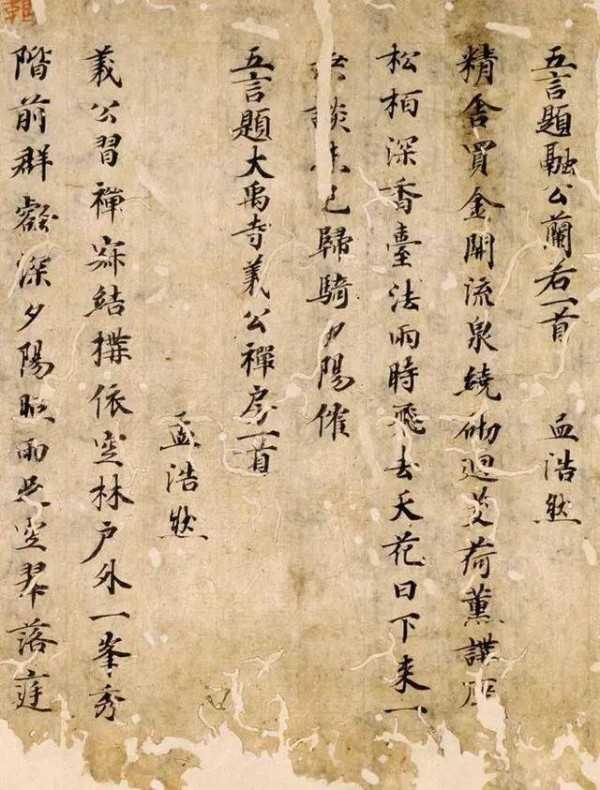 五言題融公蘭若一首 孟浩然
精舍買金開流泉繞砌迴芰荷薰講座
松柏深香臺法雨時飛去天花日下來一
談未已歸騎夕陽催
五言題大禹寺義公禪房一首
孟浩然
義公習禪寂結搆依空林戶外一峯秀
階前群壑深夕陽照雨足空翠落庭